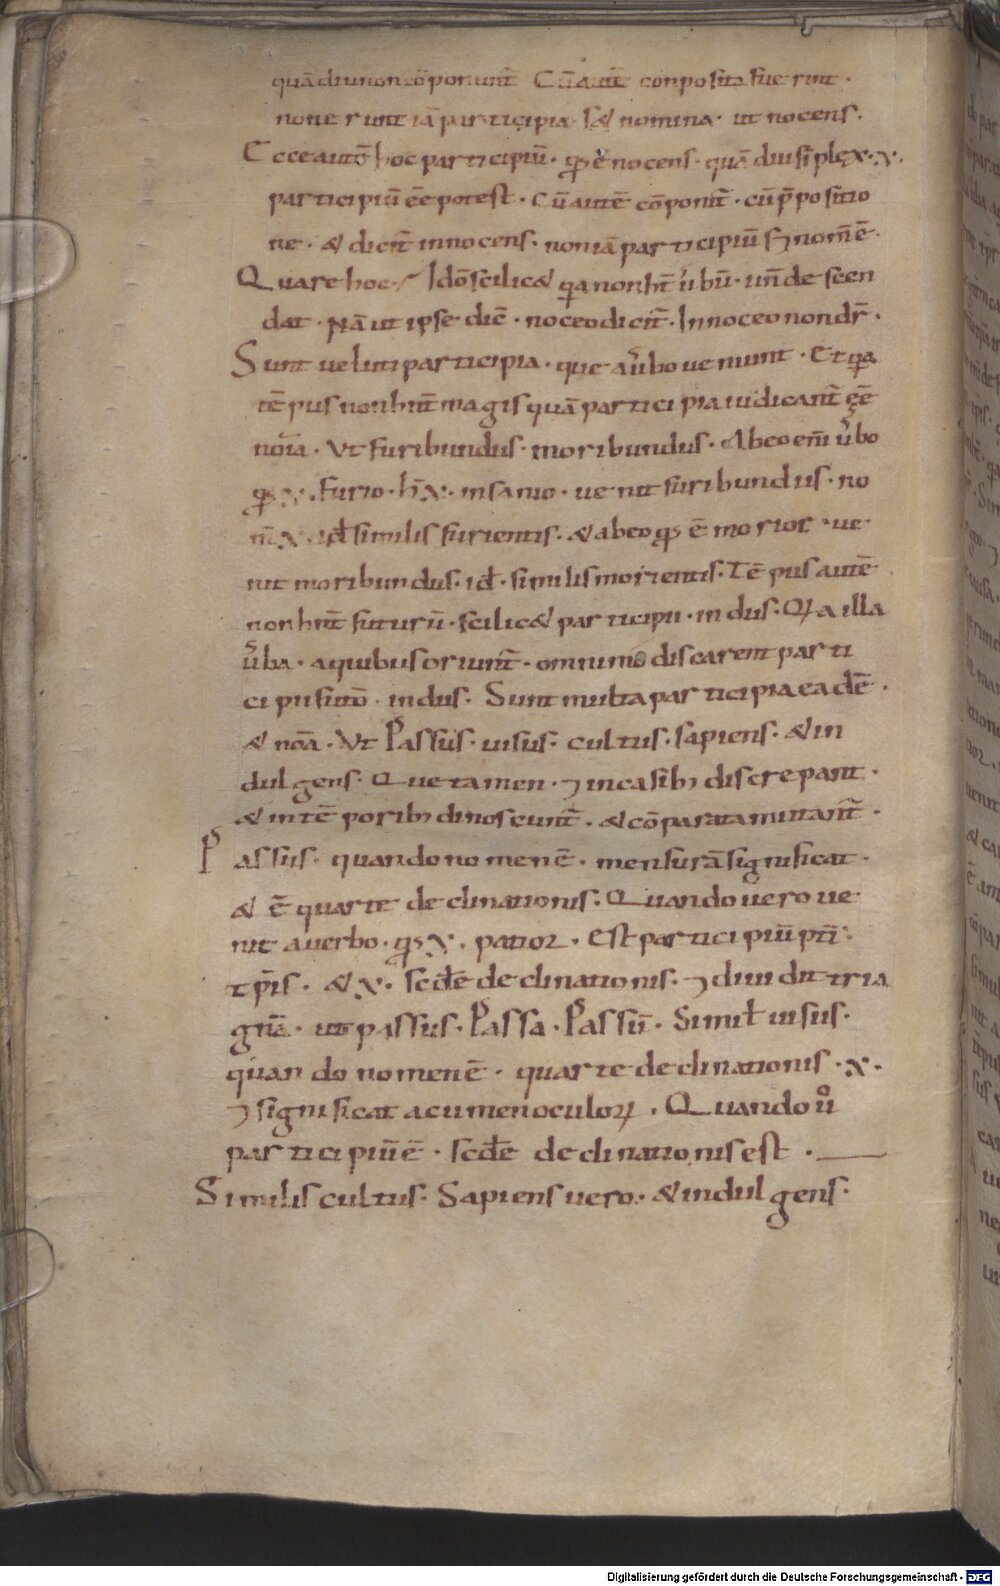 quā diu non cōponunt̄ Cū autē conposita fuerint ·
non erunt iā participia · s& nomina · ut nocens ·
Ecce autē hoc participiū · qđ ē nocens · quā diu simplex · x̄ ·
participiū eē potest · Cū autē cōponit̄ · cū p̄positio
ne · & dicit̄ innocens · non iā participiū s; nom̄ ē ·
Quare hoc · Idō scilic& q̄a non hn̄t ůbū · un̄ descen
dat · Nā ut ipse dic̄ · noceo dicit̄ · Innoceo non dr̄ ·
Sunt veluti participia · que a ůbo veniunt · Et q̄a
tēpus non hn̄t magis quā participia iudicant̄ eē
noīa · Ut furibundus · moribundus · Ab eo em̄ ůbo
qđ x̄ · furio · h̄ x̄ · insanio · venit furibundus · no
m̄ x̄ · id̄ similis furientis · & ab eo qđ ē morior · ve
nit moribundus · id̄ · similis morientis · Tēpus autē
non hn̄t futurū · scilic& participii · in dus · Q̄a illa
ůba · a quibus oriunt̄ · omnimo discarent parti
cipii futō · in dus · Sunt multa participia eadē ·
& noīa · Ut Passus · visus · cultus · sapiens · & in
dulgens · Que tamen · ⁊ in casib; discrepant ·
& in tēporib; dinoscunt̄ · & cōparata mutant̄ ·
Passus · quando nomen ē · mensurā significat ·
& ē quarte declinationis · Quando vero ve
nit a verbo · qđ x̄ · patior · Est participiū pt̄i
tp̄is · & x̄ · scd̄e declinationis · ⁊ dividit tria
gn̄a · ut passus · Passa · Passū · Simil̄ visus ·
quando nomen ē · quarte declinationis · x̄ ·
⁊ significat acumen oculoꝝ · Quando ů
participiū ē · scd̄e declinationis est ·
Similis cultus · Sapiens vero · & indulgens ·
Digitalisierung gefördert durch die Deutsche Forschungsgemeinschaft · DFG